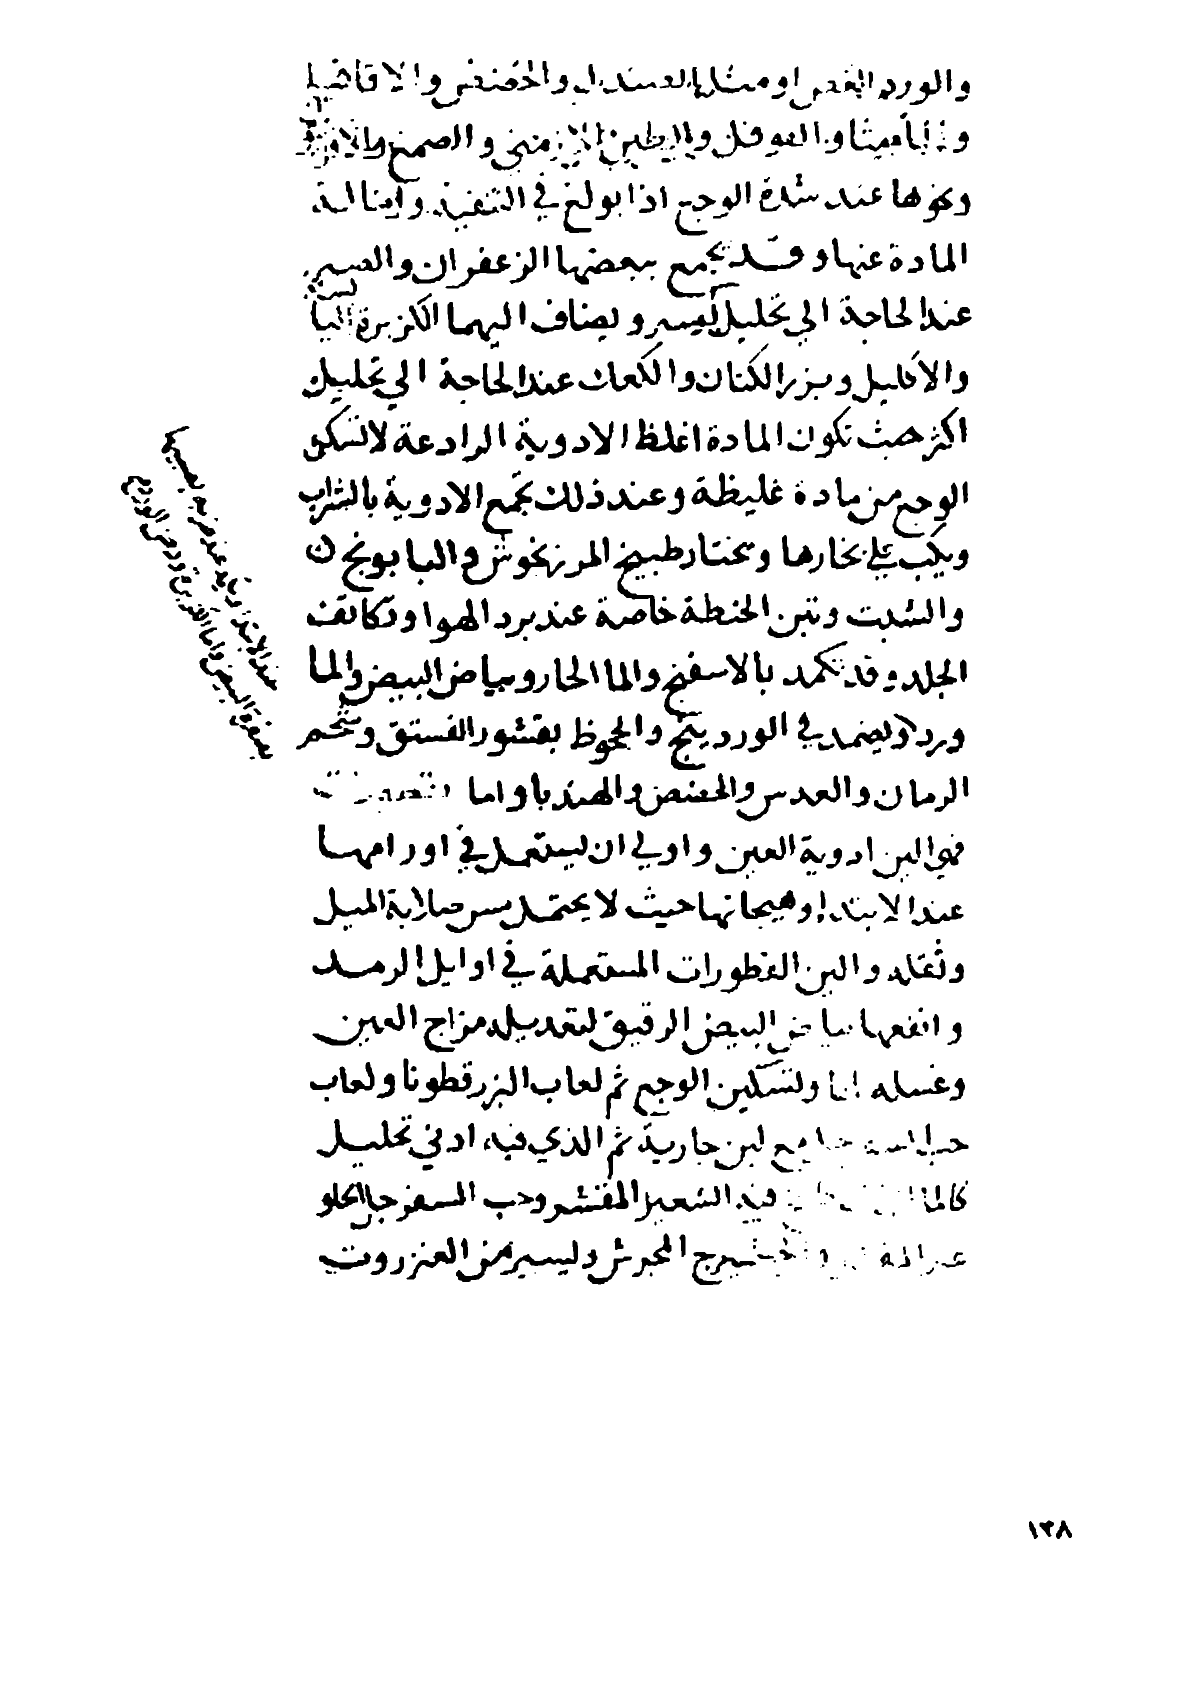 والورد الغض او مثل الصندل والحضض والاقاقيا
والماميثا والفوفل والطين الارمني والصمغ
ونحوها عند شدة الوجع اذا بولغ في التنقية وامالة
المادة عنها وقد يجمع ببعضها الزعفران والصبر
عند الحاجة الي تحليل يسير ويضاف اليهما الكزبرة اليابسة
والاكليل وبزر الكتان والكعك عند الحاجة الي تحليل
اكثر حيث تكون المادة اغلظ الادوية الرادعة لا تسكن
الوجع من مادة غليظة وعند ذلك يجمع الادوية بالشراب
ويكب علي بخارها وتختار طبيخ المرزنجوش والبابونج
والشبت وتبن الحنطة خاصة عند برد الهوا وتكاثف
الجلد وقد تكمد بالاسفنج والما الحار وبياض البيض والما
ورد ويضمد في الوردينج والجحوظ بقشور الفستق وشحم
الرمان والعدس والحضض والهندبا واما
فهي الين ادوية العين واولي ان يستعمل في اورامها
عند الابتدا وهيجانها حيث لا يحتمل مس صلابة الميل
وثقله والين القطورات المستعملة في اوايل الرمد
وانفعها بياض البيض الرقيق لتعديله مزاج العين
وغسله لها ولتسكين الوجع ثم لعاب البزرقطونا ولعاب
حب السفرجل مع لبن جارية ثم الذي فيه ادني تحليل
فيه الشعير المقشر وحب السفرجل الحلو
المجرش ويسير من العنزروت
عند الابتدا وفايد عند ضربه يصيبها
بصفرة البيض واما الكزبرة ودهن الورد
١٣٨